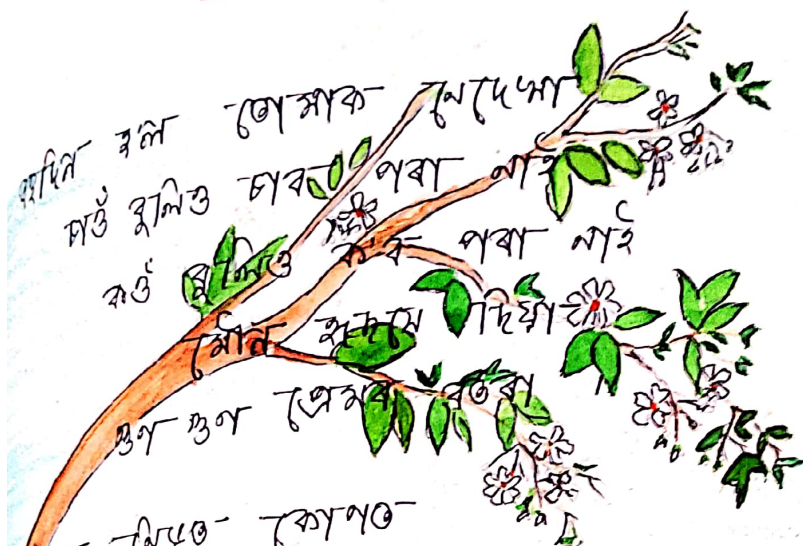 বহুদিন হ'ল তোমাক নেদেখা
চাওঁ বুলিও চাব পৰা নাই
কওঁ বুলিও ক'ব পৰা নাই
মৌন হৃদয়ে দিয়া
গুণ গুণ প্ৰেমৰ বতৰা
কোণত